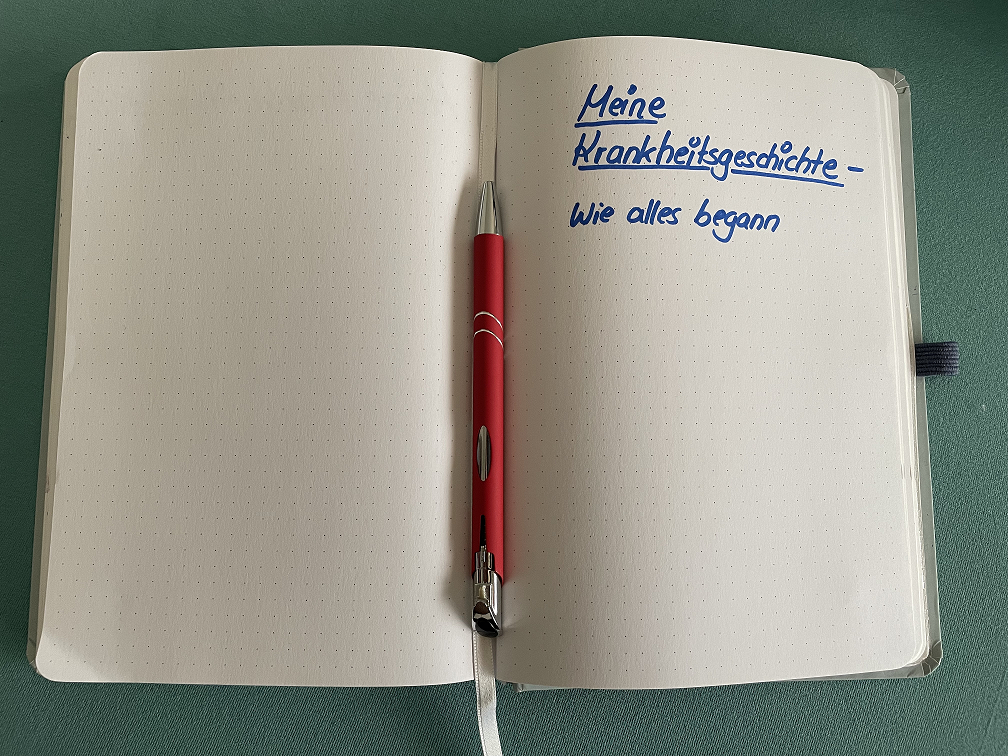 Meine
Krankheitsgeschichte -
Wie alles begann